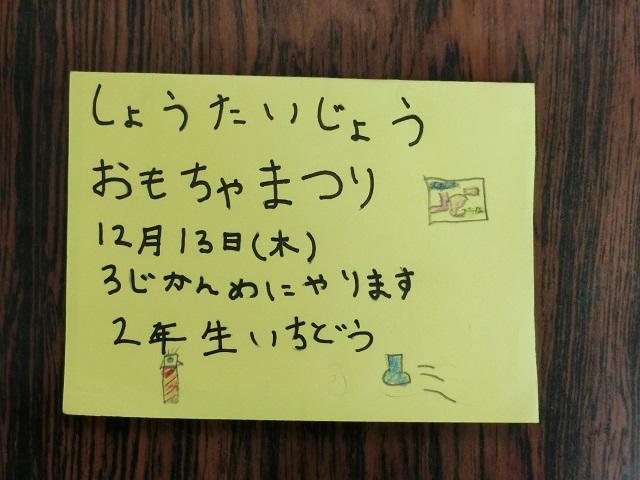 しょうたいじょう
おもちゃまつり
12月13日(木)
3じかんめにやります
2年生いちどう